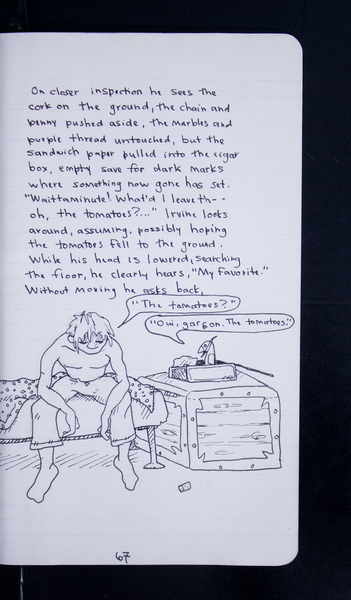 On closer inspection he sees the
cork on the ground, the chain and
penny pushed aside, the marbles and
purple thread untouched, but the
sandwich paper pulled into the cigar
box, empty save for dark marks
where something now gone has set.
"Waittaminute! What'd I leave th--
oh, the tomatoes?..." Irvine looks
around, assuming, possibly hoping
the tomatoes fell to the ground.
While his head is lowered, searching
the floor, he clearly hears, "My favorite."
Without moving he asks back,
"The tomatoes?"
"Oui, garson. The tomatoes."
67